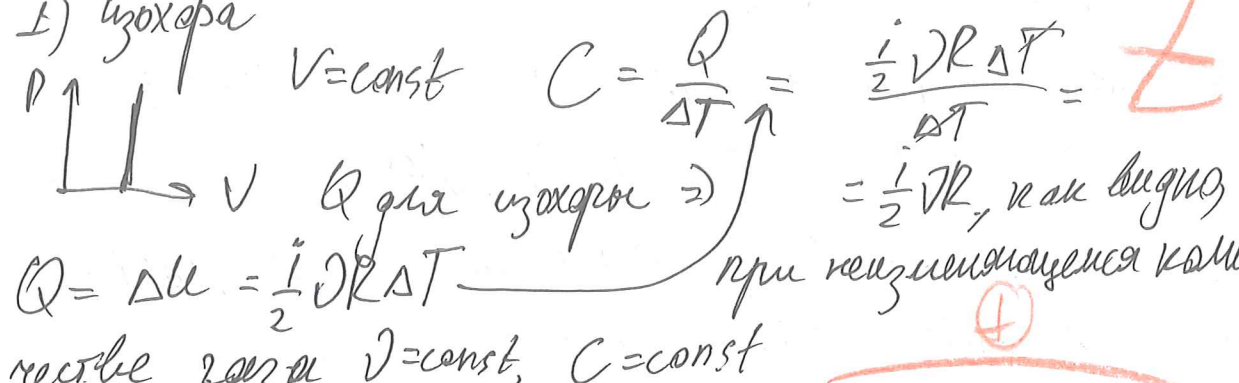 1) изохора
P V=const C = Q/ΔT = (i/2 νRΔT)/ΔT =
V Q для изохоры ⇒ = i/2 νR, как видно,
Q = ΔU = i/2 νRΔT при неизменяющемся коли
честве газа ν=const, C=const